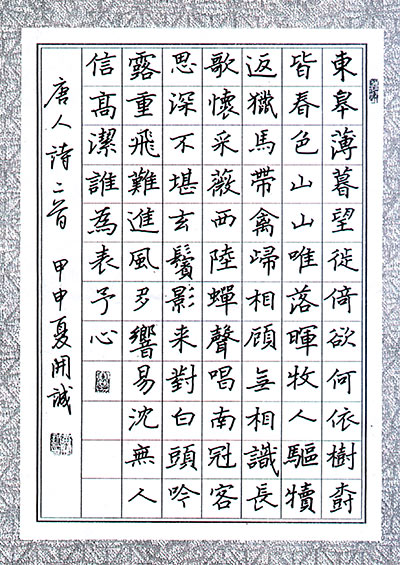 東皋薄暮望徙倚欲何依樹尌
皆春色山山唯落暉牧人驅犢
返獵馬帶禽歸相顧無相識長
歌懷采薇西陸蟬聲唱南冠客
思深不堪玄鬢影来對白頭吟
露重飛難進風多響易沈無人
信高潔誰為表予心
唐人詩二首 甲申夏開誠